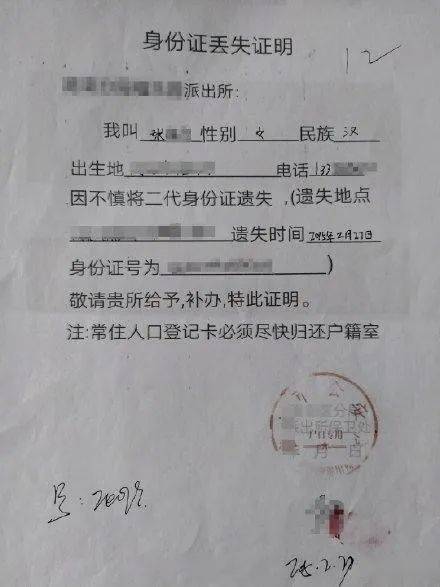 身份证丢失证明
12
派出所:
我叫 张 性别 女 民族 汉
出生地 电话 133
因不慎将二代身份证遗失,(遗失地点
遗失时间 2015年2月27日
身份证号为 )
敬请贵所给予,补办,特此证明。
注:常住人口登记卡必须尽快归还户籍室
公
分局
派出所保卫处
户口专用
年 月 日